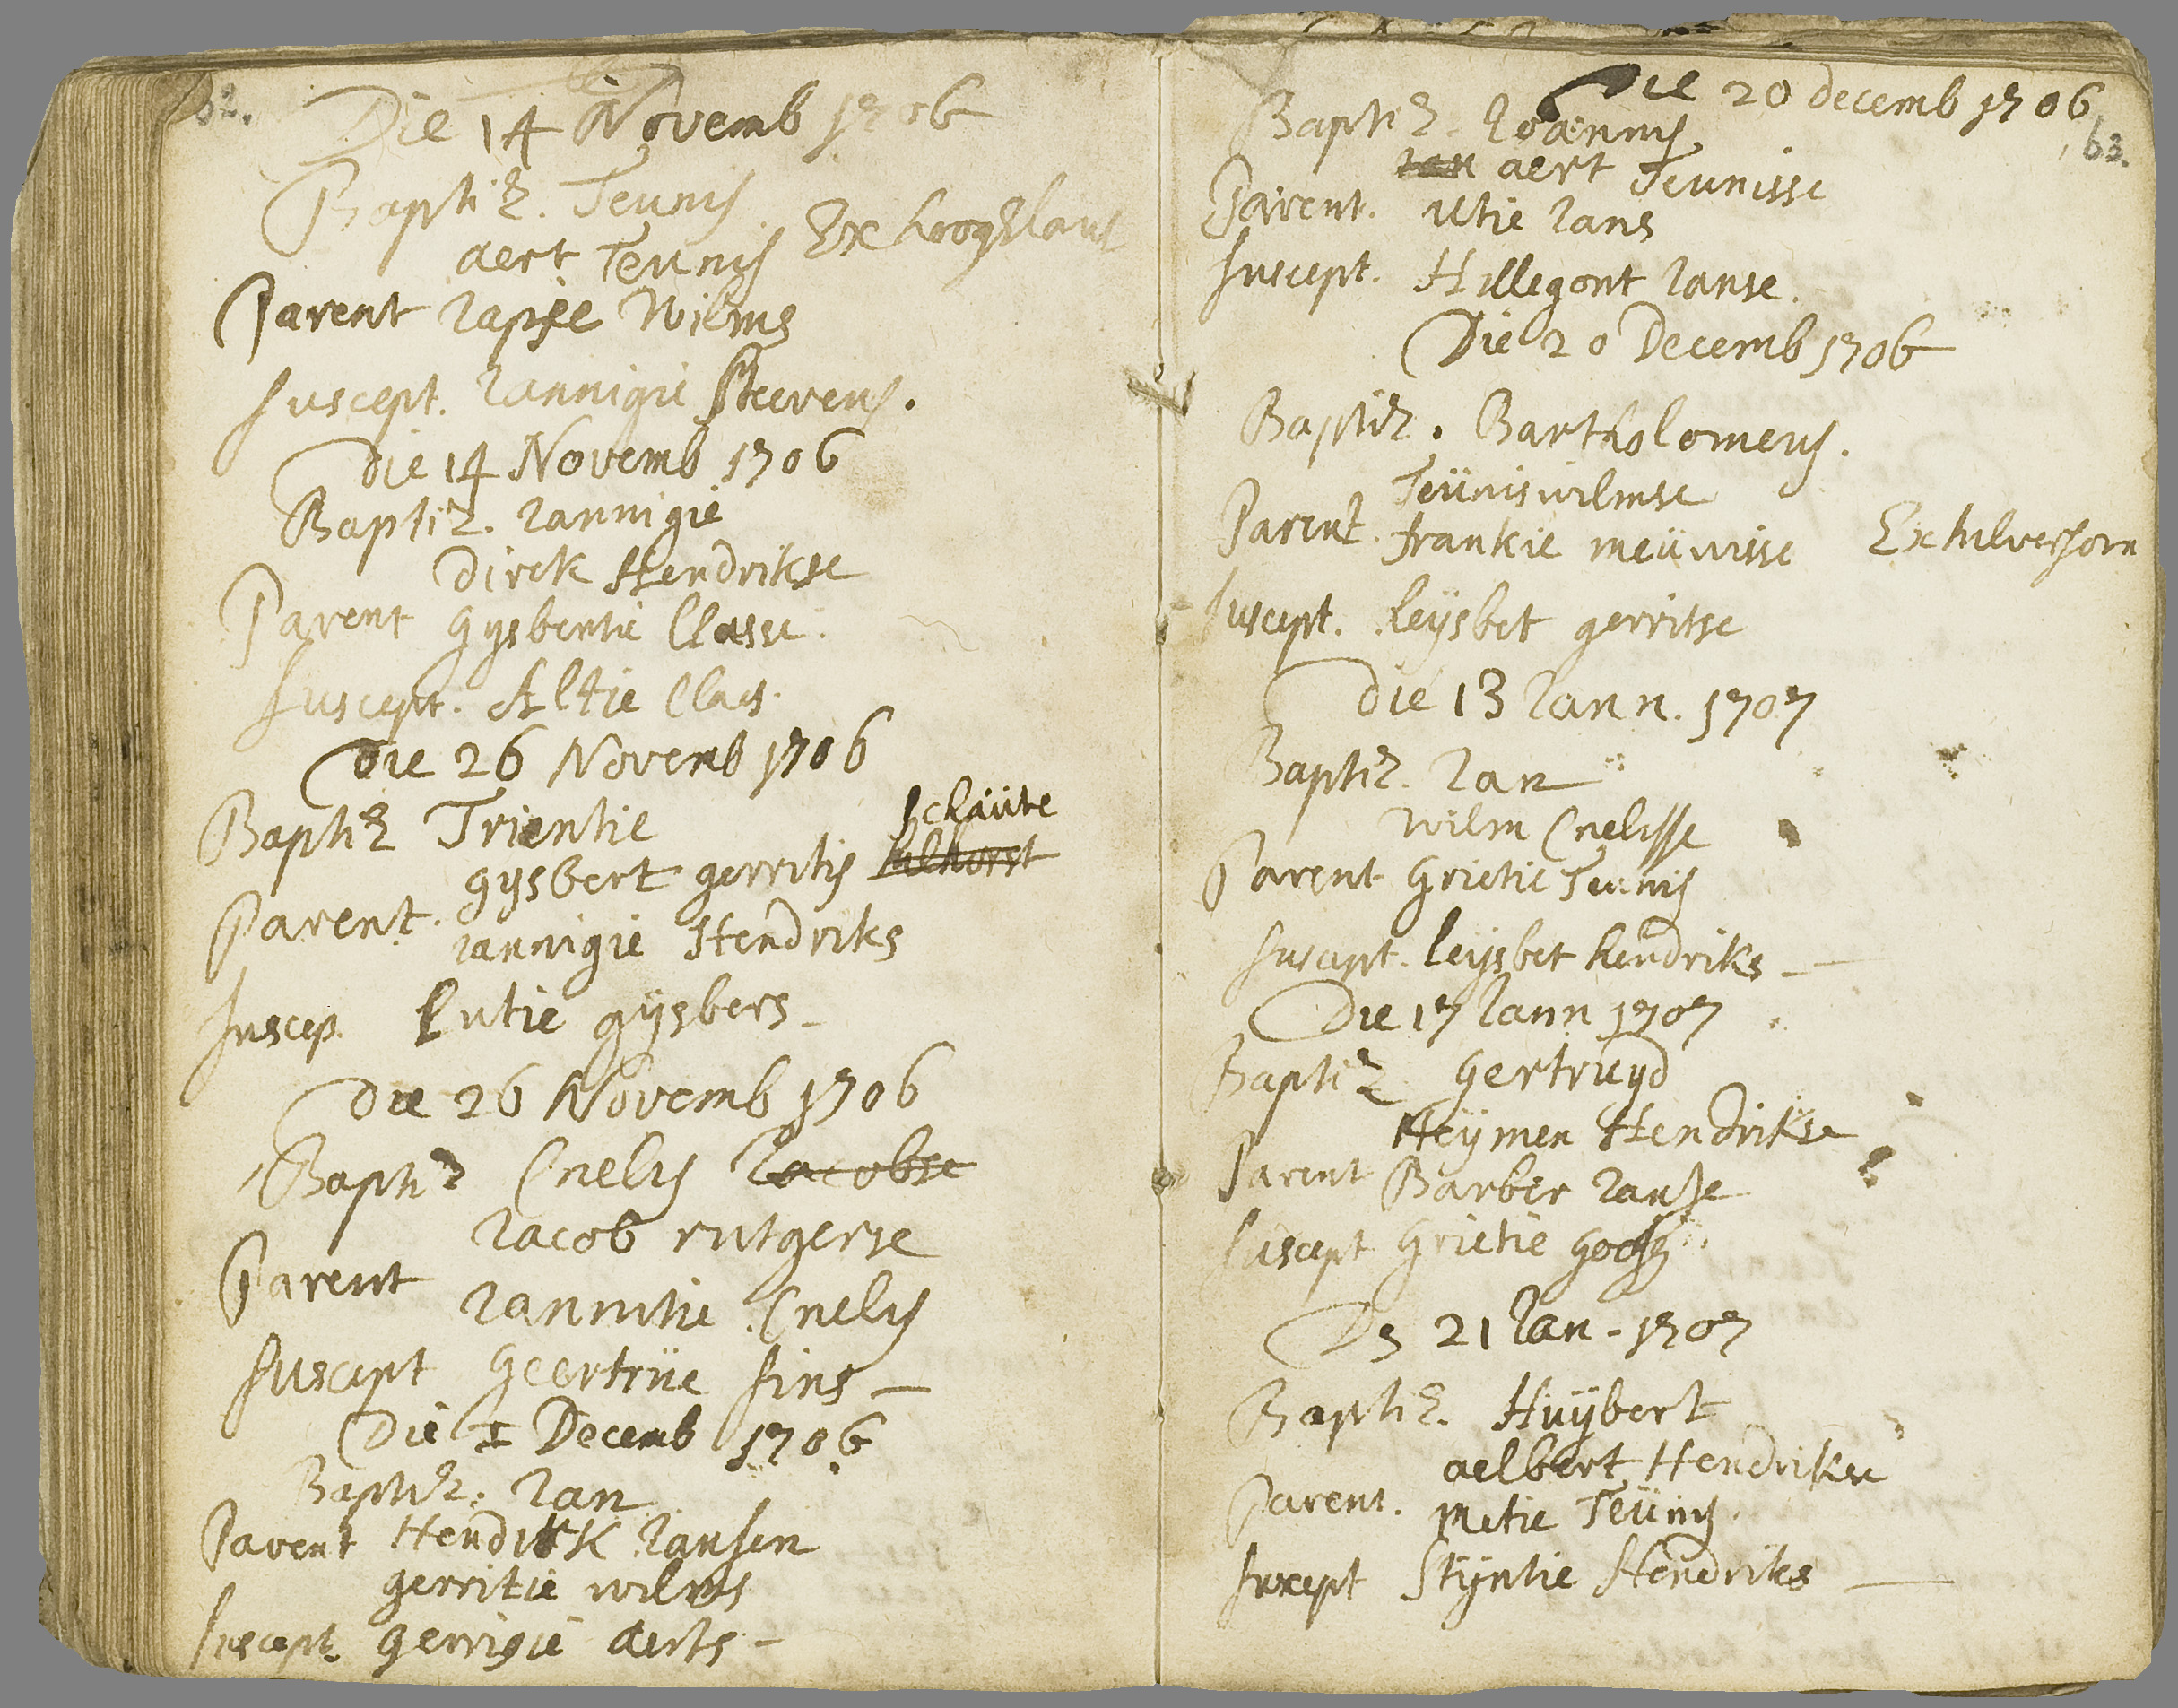 62.
Die 14 Novemb 1706
Baptiz. Teunis
aert Teunis Ex hoogelant
Parent Iapie Wilms
Suscept. Iannigie Steevens.
Die 14 Novemb 1706
Baptiz. Iannigie
Dirck Hendrikse
Parent Gysbertie Classe.
Suscept. Altie Claes.
Die 26 Novemb 1706
Baptiz Trientie
Schaüte
gysbert gerritis
Parent. Iannigie Hendriks
Suscep. Lutie gÿsbers
Die 26 Novemb 1706
Baptiz Cnelis Iacobse
Iacob rutgerse
Parent Iannitie Cnelis
Suscept Geertrüe Sins
Die I Decemb 1706
Baptiz. Ian
Parent Hendrik Iansen
gerritie wilms
Suscept. gerrigie aerts
Die 20 decemb 1706
63.
Baptiz. Ioannis
Ian aert Teunisse
Parent. Utie Ians
Suscept. Hillegont Ianse.
Die 20 Decemb 1706
Baptiz. Bartholomeus.
Teünis wilmse
Parent. frankie meüwisse Ex hilversom
Suscept. Leÿsbet gerritse
Die 13 Iann. 1707
Baptiz. Ian
Wilm Cnelisse
Parent Grietie Teunis
Suscept. Leÿsbet hendriks
Die 17 Iann 1707
Baptiz Gertruyd
Heÿmen Hendrikse
Parent Barber Ianse
Suscept Grietie
D 21 Ian - 1707
Baptiz. Huÿbert
aelbert Hendrikse
Parent. Metie Teünis.
Suscept Stÿntie Hendriks